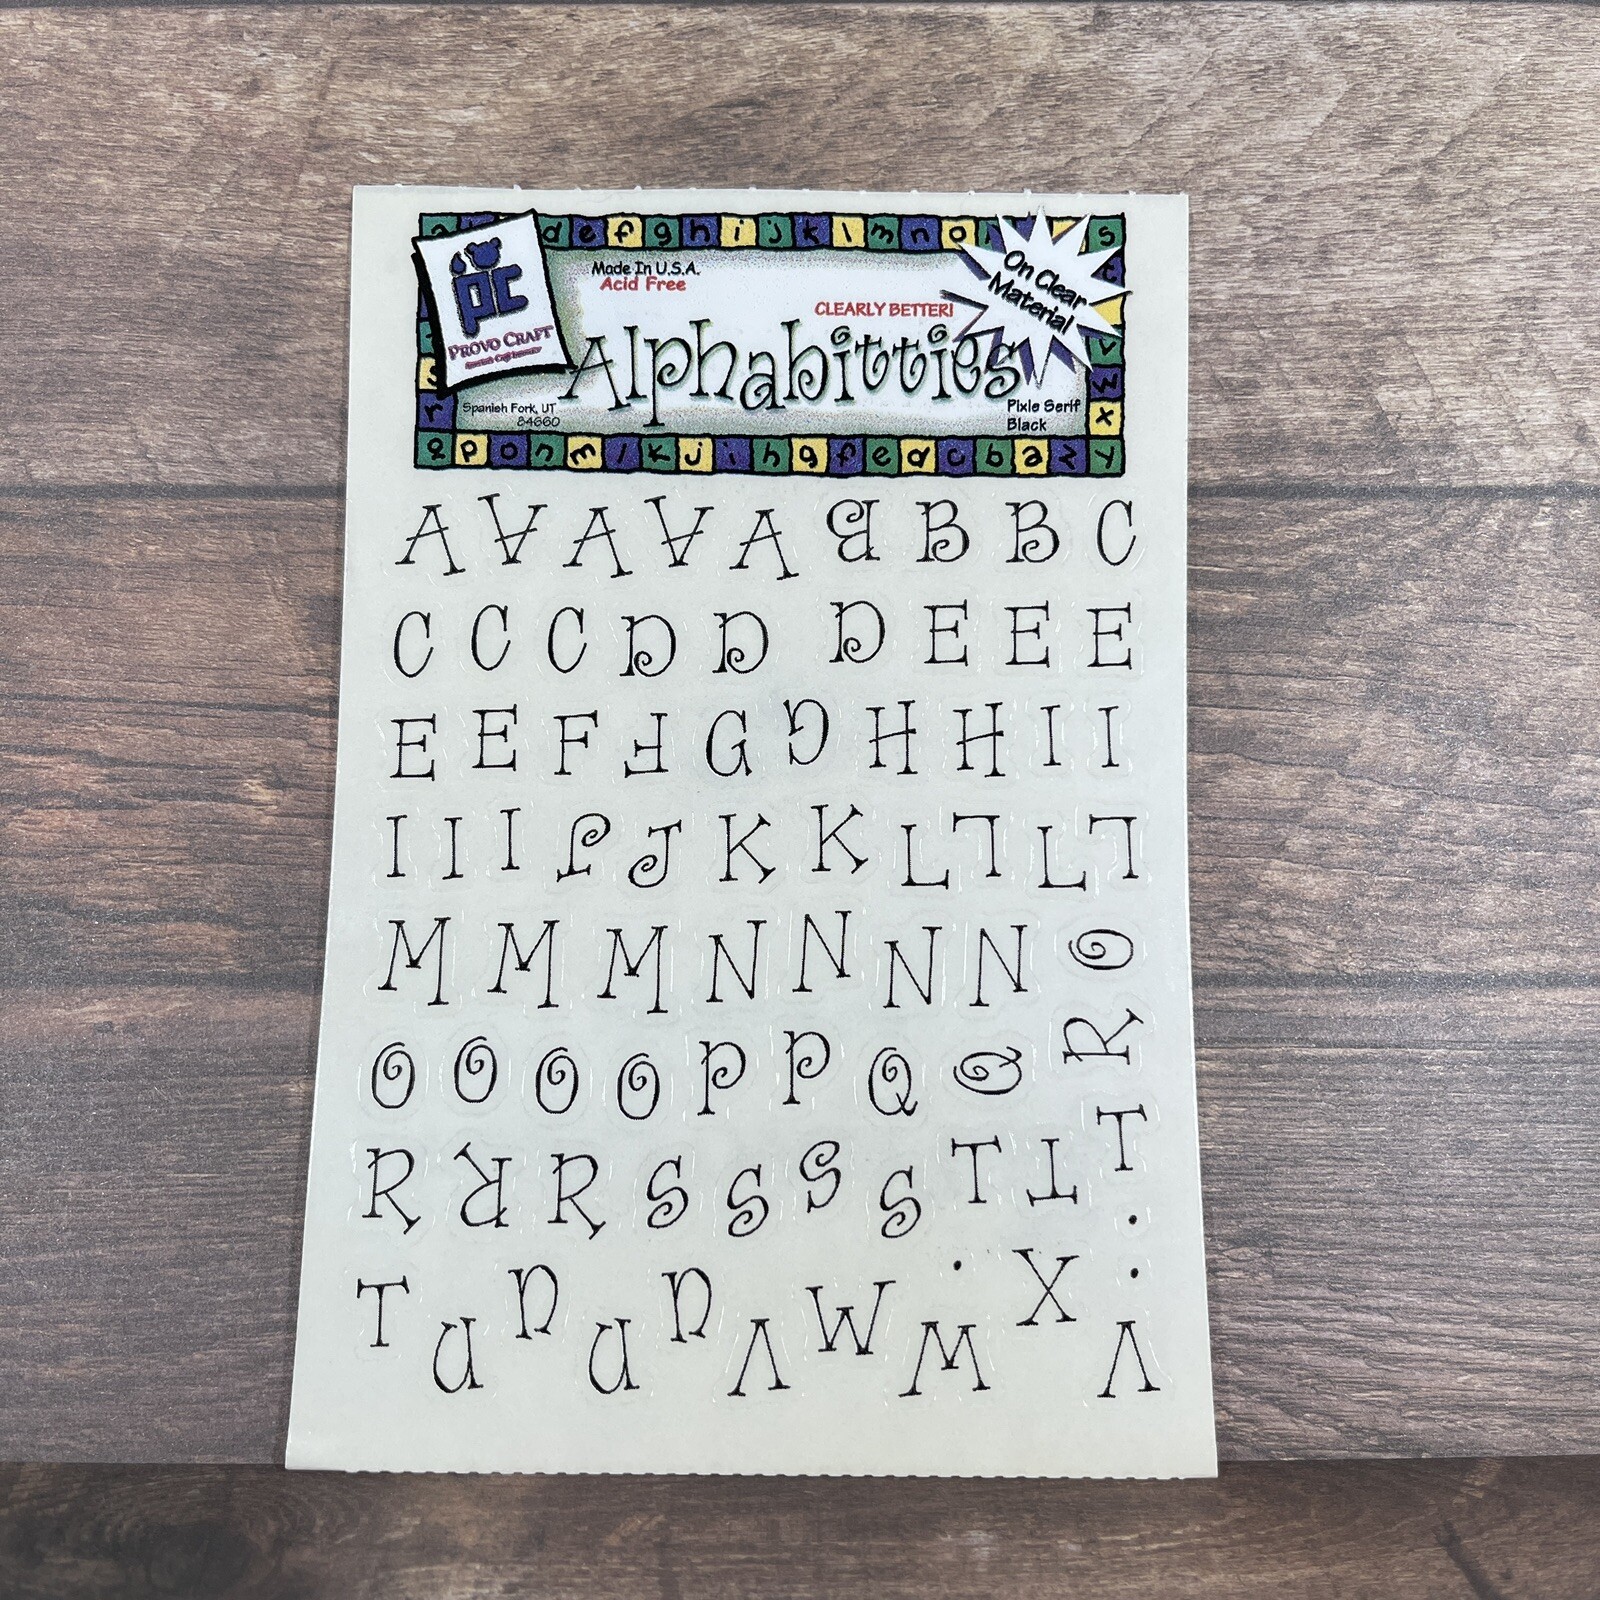 d e f g h i j k l m n o s
PC
PROVO CRAFT
Made In U.S.A.
Acid Free
CLEARLY BETTER!
On Clear
Material
Alphabitties
Spanish Fork, UT
84660
Pixie Serif
Black
v
w
x
r
q p o n m l k j i h g f e d c b a z y
A A A A A B B B C
C C C D D D E E E
E E F F G G H H I I
I I I J J K K L L L L
M M M N N N N O
O O O O P P Q Q R
R R R S S S S T T T
T U U U U V W W . X . . V